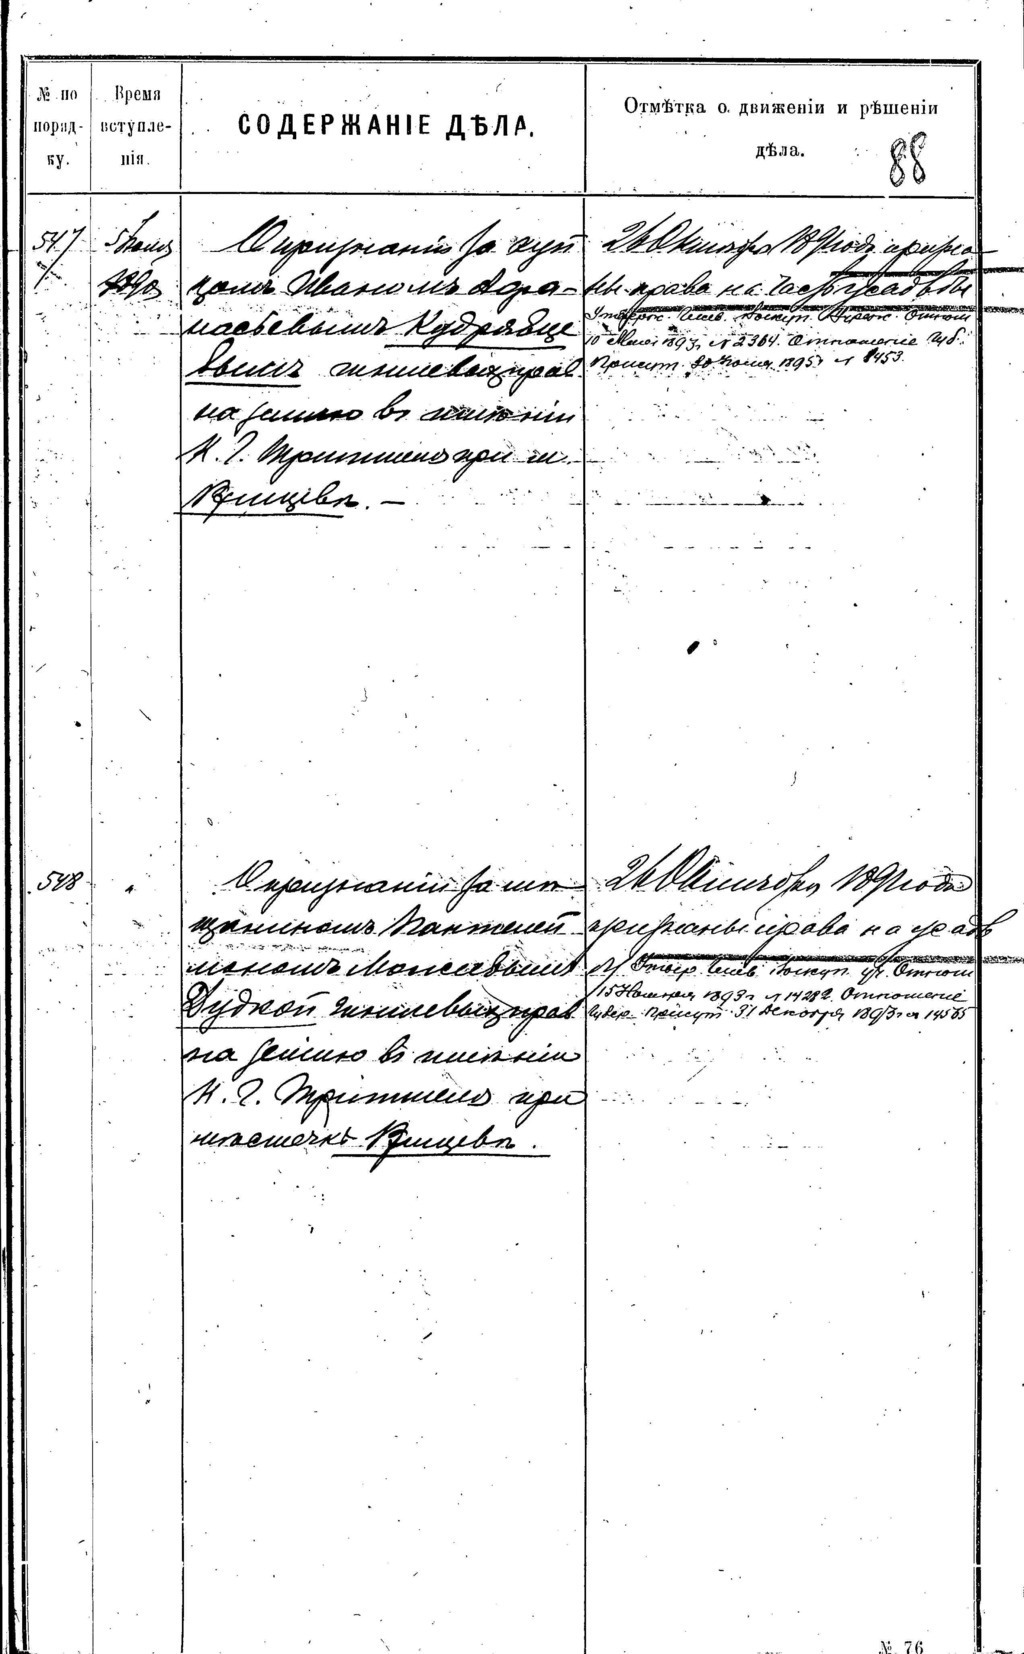 № по порядку.
Время вступленія.
СОДЕРЖАНІЕ ДѢЛА.
Отмѣтка о движеніи и рѣшеніи
дѣла.
88
547
1890
О признаніи за куп
цомъ Иваномъ Афа-
насьевымъ Кудрявце
вымъ чиншевыхъ прав
на землю въ имѣніи
К. Г. при м.
Ржищевѣ. —
26 Октября 1891 года призна
ны права на часть усадьбы
10 1893 г. № 2364. Отношеніе Губ.
Присут. 1895 г № 8453.
548
"
О признаніи за мѣ
щаниномъ Пантелей
мономъ Моисѣевымъ
Дудкой чиншевыхъ прав
на землю въ имѣніи
К. Г. при
мѣстечкѣ Ржищевѣ.
26 Октября 1891 года
признаны права на усадь
бу
15 Ноября 1893 г № 14282. Отношеніе
Губер. Присут. 31 Декабря 1893 г № 14565
№ 76